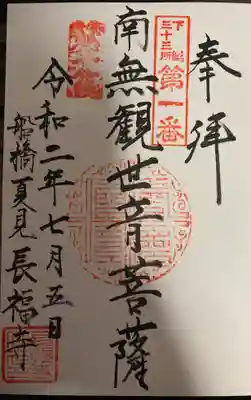 奉拝
下総三十三所
第一番
南無観世音菩薩
令和二年七月五日
船橋夏見 長福寺